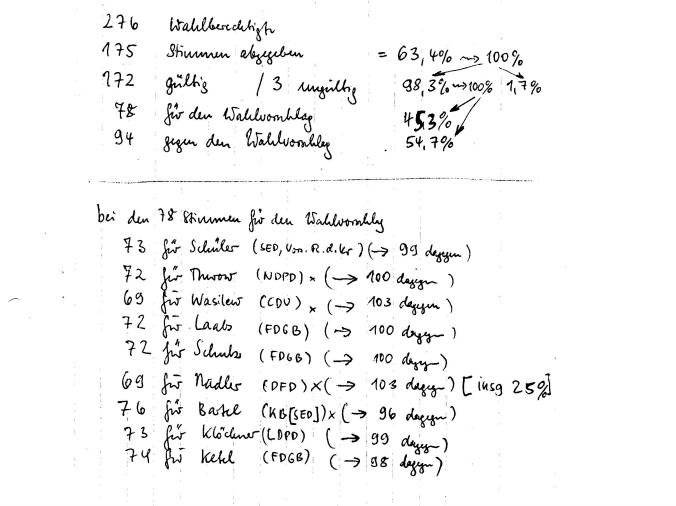 276 Wahlberechtigte
175 Stimmen abgegeben = 63,4% ⇝ 100%
172 gültig / 3 ungültig 98,3% ⇝ 100% 1,7%
78 für den Wahlvorschlag 45,3%
94 gegen den Wahlvorschlag 54,7%
bei den 78 Stimmen für den Wahlvorschlag
73 für Schüler (SED, Vors. R. d. Kr) (→ 99 dagegen)
72 für Thurow (NDPD) x (→ 100 dagegen)
69 für Wasilew (CDU) x (→ 103 dagegen)
72 für Laabs (FDGB) (→ 100 dagegen)
72 für Schulz (FDGB) (→ 100 dagegen)
69 für Nadler (DFD) x (→ 103 dagegen) [insg 25%]
76 für Bartel (KB[SED]) x (→ 96 dagegen)
73 für Klöckner (LDPD) (→ 99 dagegen)
74 für Ketel (FDGB) (→ 98 dagegen)